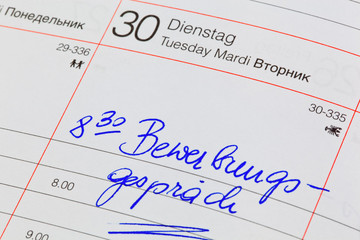 i Понедельник
29-336
30 Dienstag
Tuesday Mardi Вторник
30-335
8 30 Bewerbungs-
gespräch
8.00
9.00